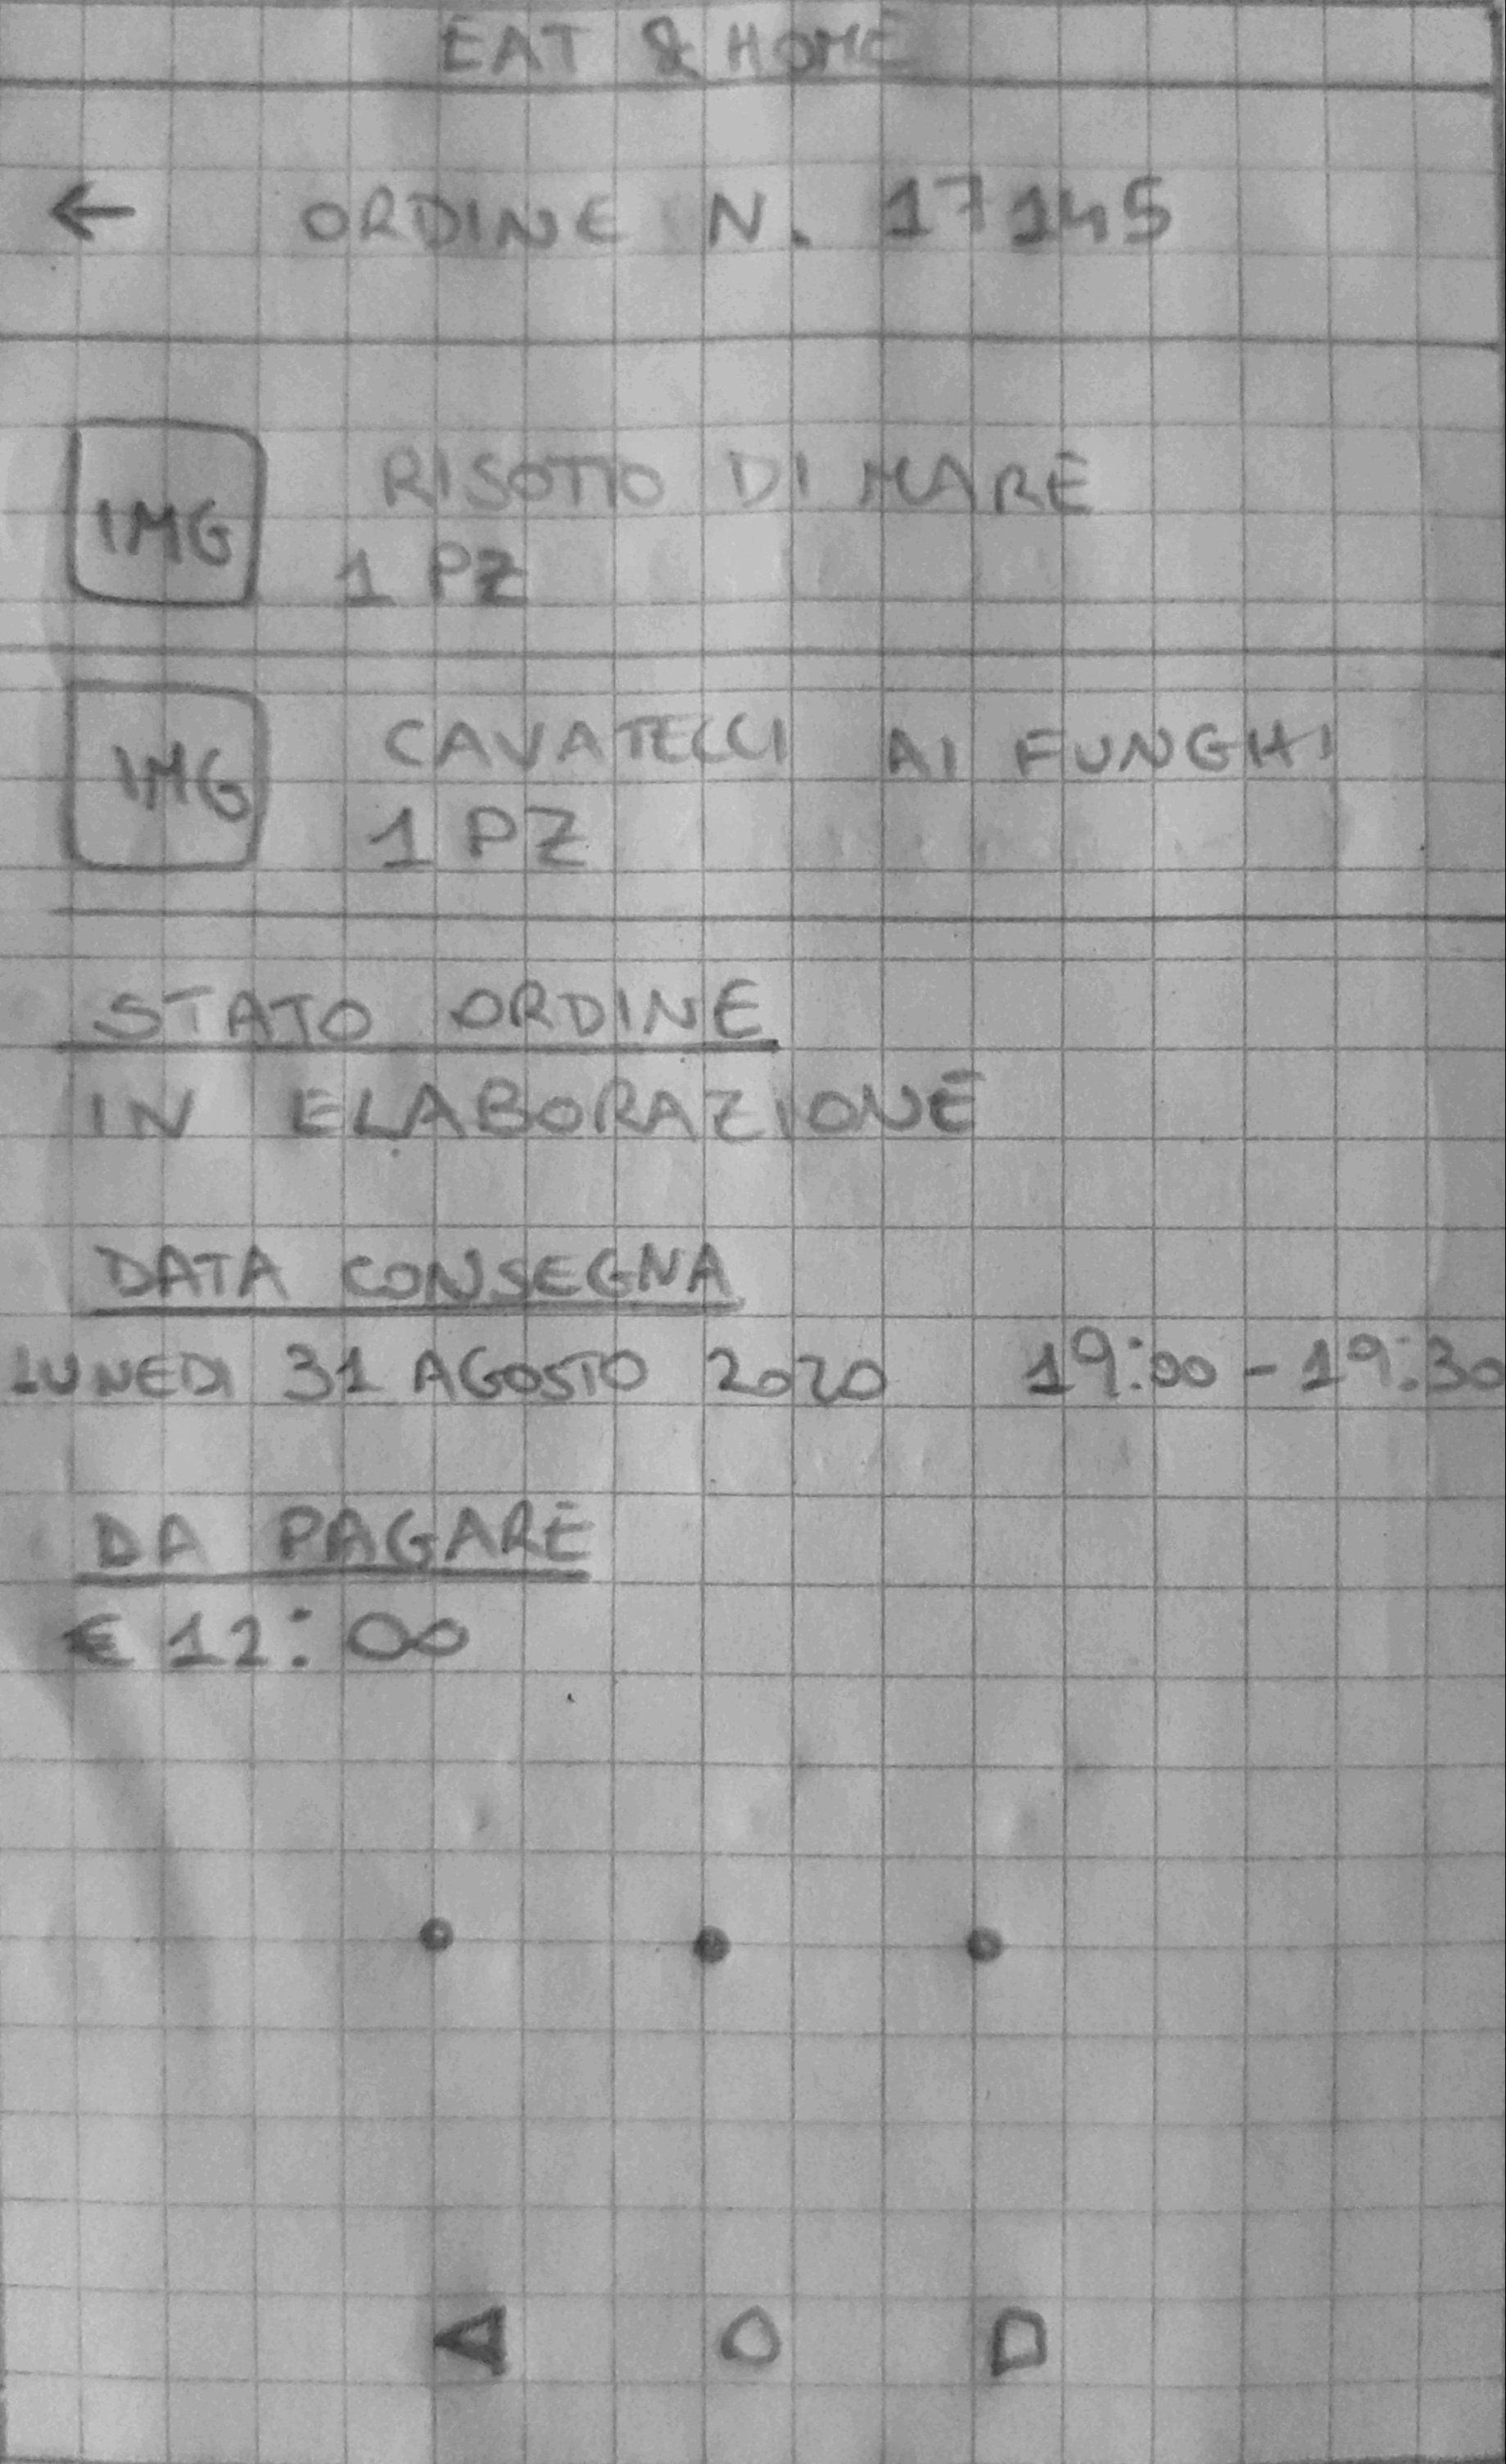 EAT & HOME
← ORDINE N. 17145
IMG
RISOTTO DI MARE
1 PZ
IMG
CAVATELLI AI FUNGHI
1 PZ
STATO ORDINE
IN ELABORAZIONE
DATA CONSEGNA
LUNEDI 31 AGOSTO 2020 19:00 - 19:30
DA PAGARE
€ 12:00